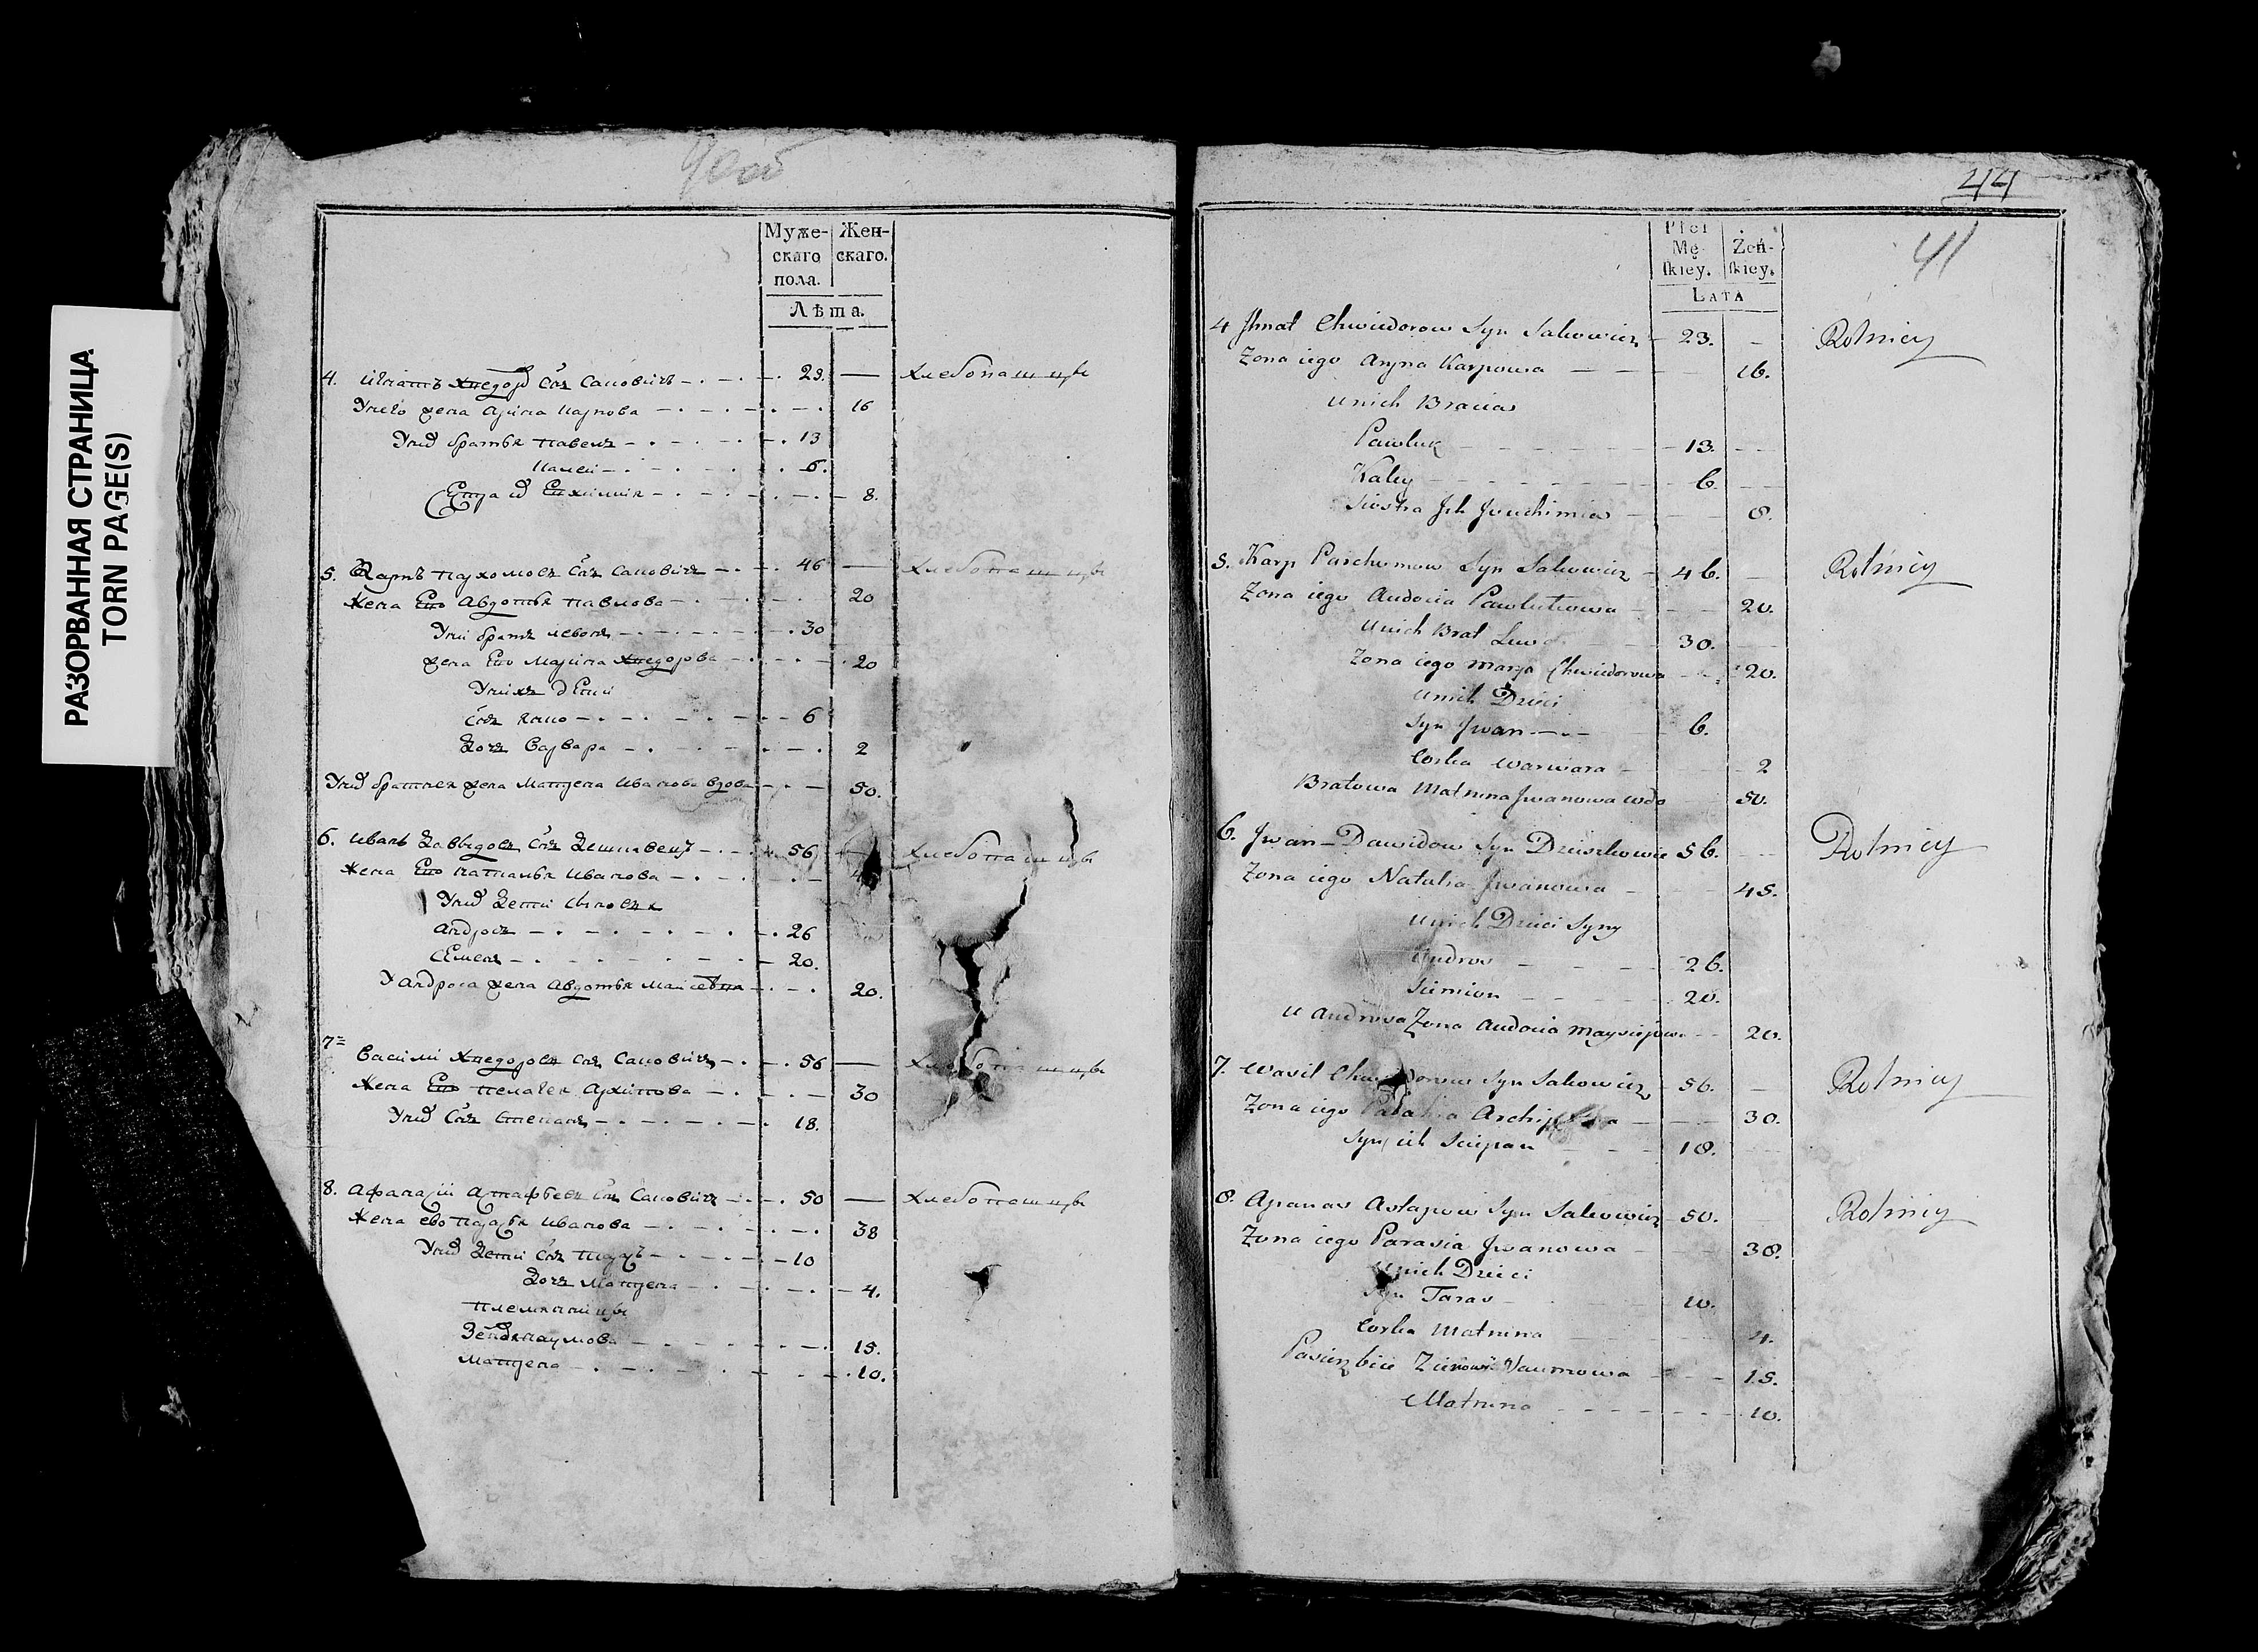 РАЗОРВАННАЯ СТРАНИЦА
TORN PAGE(S)
Муже-
скаго
пола.
Жен-
скаго.
Лѣта.
4. Игнатъ Хведоровъ Снъ Саковичъ 23. — хлебопашцы
Унего жена Арина Карпова 16
Унихъ братья Павелъ 13
Калей 6.
Сестра их Евхимия 8.
5. Карпъ Пархомовъ Снъ Саковичъ 46 — хлебопашцы
Жена Его Авдотья Павлова 20
Унихъ братъ Левонъ 30
жена Его Марина Хведорова 20
Унихъ дети
Снъ 6
Дочь Варвара 2
Унихъ братнея жена Матрена Иванова вдова 50.
6. Иванъ Давыдовъ Снъ 56 хлебопашцы
Жена Его Наталья Иванова
Унихъ дети
Андросъ 26
Семенъ 20.
У Андроса жена Авдотья Майсевна 20.
7 Василий Хведоровъ Снъ Саковичъ 56 — хлебопашцы
Жена Его Пелагея Архипова 30
Унихъ Снъ Степанъ 18.
8. Афанасий Астафьевъ Снъ Саковичъ 50 — хлебопашцы
Жена ево Парасья Иванова 38
Унихъ дети Снъ Тарасъ 10
Дочь Матрена 4.
племянницы
Наумова 15.
Матрена 10.
44
41
Płci
Mę-
ſkiey.
Żeń-
ſkiey.
LATA
4 Jhnat Chwiedorow Syn Sakowicz 23. Rolnicy
Zona iego Aryna Karpowa 16.
unich Bracia
Pawluk 13.
Kaley 6.
Siostra Jch Jeuchimia 8.
5. Karp Parchomow Syn Sakowicz 46. Rolnicy
Zona iego Audocia Pawlukowa 20.
unich Brat 30.
Zona iego Marya Chwiedorowa 20.
unich Dzieci
Syn Jwan 6.
Corka Warwara 2
Bratowa Matruna Jwanowa wdo 50.
6. Jwan Dawidow Syn 56. Rolnicy
Zona iego Natalia Jwanowa 45.
unich Dzieci Syny
Andros 26.
Siemion 20.
u Androsa Zona Audocia Maysiejowa 20.
7. Wasil Syn Sakowicz 56. Rolnicy
Zona iego 30.
Syn ich Sciepan 18.
8. Apanas Astapow Syn Sakowicz 50. Rolnicy
Zona iego Parasia Jwanowa 38.
unich Dzieci
Syn Taras 10.
Corka Matruna 4.
Pasierzbice Naumowa 15.
Matruna 10.